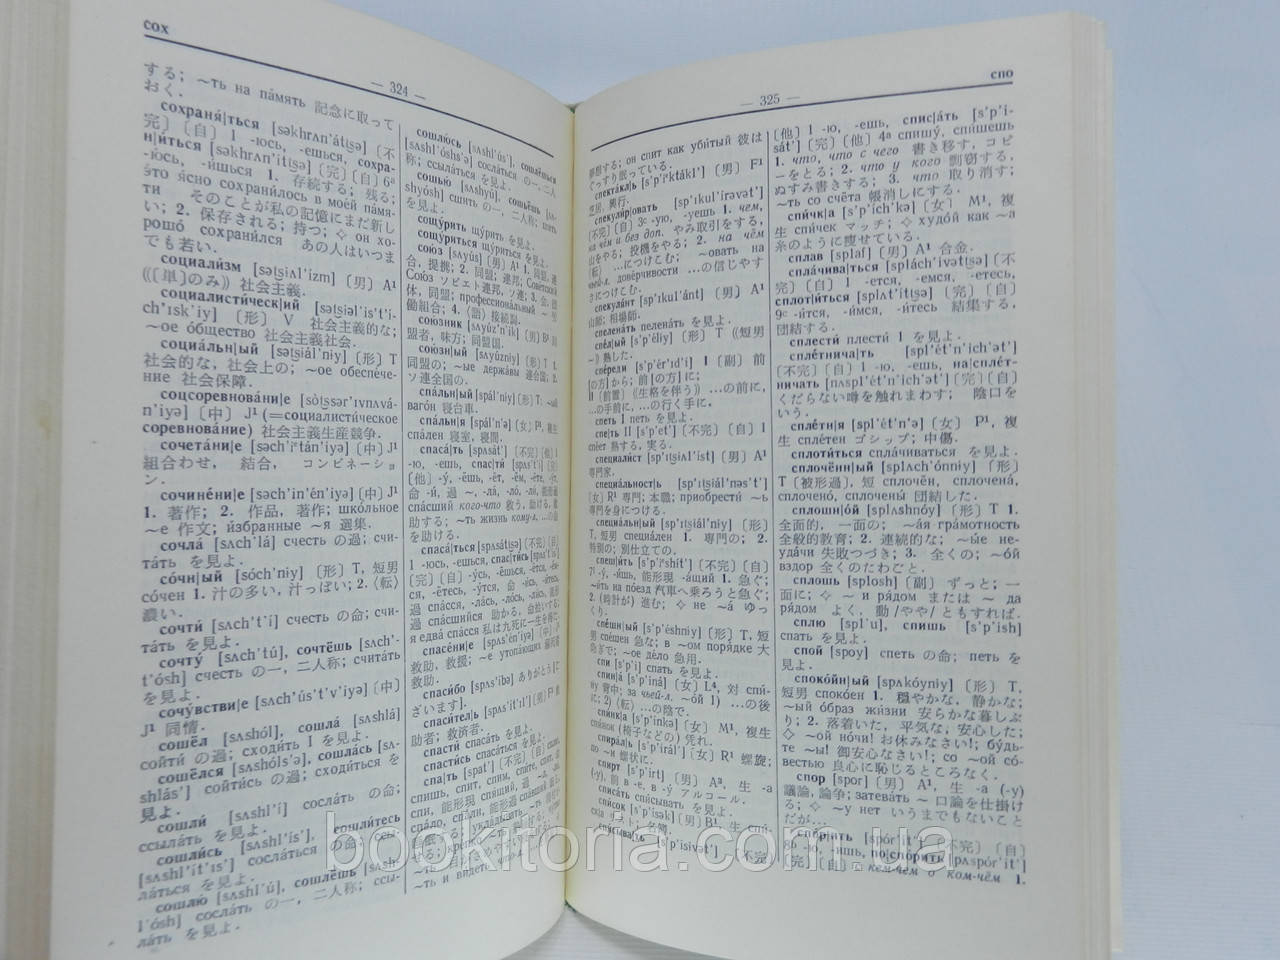 сох
— 324 —
する; ~ть на па́мять 記念に取って
おく.
сохраня́|ться [səkhrʌn'átiʂə] 〔不
完〕〔自〕1 -юсь, -ешься, сохра-
н|и́ться
э́то я́сно сохрани́лось в мое́й па́мя-
ти そのことが私の記憶にまだ新し
い; 2. 保存される; 持つ; ◇ он хо-
рошо́ сохрани́лся あの人はいつま
でも若い.
социали́зм
(《〔単〕のみ》) 社会主義.
социалисти́ческ|ий
〔形〕 V 社会主義的な;
~ое о́бщество 社会主義社会.
социа́льн|ый
社会的な, 社会上の; ~ое обеспе́че-
ние 社会保障.
соцсоревнова́ние
〔中〕 J¹ (=социалисти́ческое
соревнова́ние) 社会主義生産競争.
сочета́ни|е
組合わせ, 結合, コンビネーショ
ン.
сочине́ни|е [səch'in'én'iyə] 〔中〕J¹
1. 著作; 2. 作品, 著作; шко́льное
~е 作文; и́збранные ~я 選集.
сочла́ [sʌch'lá] счесть の過; счи-
та́ть を見よ.
со́чн|ый [sóch'niy] 〔形〕T, 短男
со́чен 1. 汁の多い, 汁っぽい; 2.〈転〉
濃い.
сочти́ [sʌch't'í] счесть の命; счи-
та́ть を見よ.
сочту́ [sʌch'tú], сочтёшь [sʌch'-
t'ósh] счесть の一, 二人称; счита́ть
を見よ.
сочу́встви|е [sʌch'ús't'v'iyə] 〔中〕
J¹ 同情.
сошёл [sʌshól], сошла́ [sʌshlá]
сойти́ の過; сходи́ть I を見よ.
сошёлся [sʌshóls'ə], сошла́сь [sʌ-
shlás'] сойти́сь の過; сходи́ться を
見よ.
сошли́ [sʌshl'í] сосла́ть の命;
ссыла́ть を見よ.
сошли́сь [sʌshl'ís'], сошли́тесь
сосла́ться の命; ссы-
ла́ться を見よ.
сошлю́ [sʌshl'ú], сошлёшь [sʌsh-
l'ósh] сосла́ть の一, 二人称; ссы-
ла́ть を見よ.
сошлю́сь [sʌshl'ús'], сошлёшься
сосла́ться の一, 二人
称; ссыла́ться を見よ.
сошью́ [sʌshyú], сошьёшь [sʌ-
shyósh] сшить の一, 二人称; шить
を見よ.
сощу́рить щу́рить を見よ.
сощу́риться щу́риться を見よ.
сою́з [sʌyús] 〔男〕A¹ 1. 同盟, 連
合, 提携; 2. 同盟; 連邦; Сове́тский
Сою́з ソビエト連邦, ソ連; 3. 会, 団
体, 同盟; профессиона́льный ~ 労
働組合; 4.〈語〉接続詞.
сою́зник [sʌyúz'n'ik] 〔男〕B¹ 同
盟者, 味方; 同盟国.
сою́зн|ый [sʌyúzniy] 〔形〕T 1.
同盟の; ~ые держа́вы 連合国; 2.
ソ連全国の.
спа́льн|ый [spál'niy] 〔形〕T: ~ый
ваго́н 寝台車.
спа́льн|я [spál'n'ə] 〔女〕P¹, 複生
спа́лен 寝室, 寝間.
спаса́|ть [spʌsát'] 〔不完〕〔他〕1
-ю, -ешь, спас|ти́ [spʌs't'í] 〔完〕
спа́сший кого-что 救う, 助ける, 救
助する; ~ть жизнь кому-л. …の命
を助ける.
спаса́|ться [spʌsátiʂə] 〔不完〕〔自〕
1 -юсь, -ешься, спас|ти́сь
я едва́ спа́сся 私は九死に一生を得た.
спасе́ни|е [spʌs'én'iyə] 〔中〕J¹
救助, 救援; ~е утопа́ющих
救助.
спаси́бо [spʌs'íbə] ありがとう[ご
ざいます].
спаси́тел|ь [spʌs'ít'il'] 〔男〕F¹ 救
助者; 救済者.
спасти́ спаса́ть を見よ.
спасти́сь спаса́ться を見よ.
спа|ть [spat'] 〔不完〕〔自〕
спо
— 325 —
夢想する; он спит как уби́тый 彼は
ぐっすり眠っている.
спекта́кл|ь [s'p'iktákl'] 〔男〕F¹
芝居, 興行.
спекули́р|овать [s'p'ikul'írəvət']
〔不完〕〔自〕3ᶜ -ую, -уешь 1. чем,
на чём и без доп. やみ取引をする,
山をやる; 投機をやる; 2. на чём
〈転〉…につけこむ; ~овать на
чьей-л. дове́рчивости …の信じやす
さにつけこむ.
спекуля́нт [s'p'ikul'ánt] 〔男〕A¹
山師; 相場師.
спелена́ть пелена́ть を見よ.
спе́л|ый [s'p'éliy] 〔形〕T (《短男
~》) 熟した.
спе́реди [s'p'ér'id'i] I 〔副〕前
[の方]から; 前[の方]に;
II 〔前置〕《生格を伴う》…の前に,
…の手前に, …の行く手に.
спеть I петь を見よ.
спе|ть II [s'p'et'] 〔不完〕〔自〕1
спе́ет 熟する, 実る.
специали́ст [s'p'itʂiʌl'íst] 〔男〕A¹
専門家.
специа́льност|ь [s'p'itʂiál'nəs't']
〔女〕R¹ 専門; 本職; приобрести́ ~ь
専門を身につける.
специа́льн|ый [s'p'itʂiál'niy] 〔形〕
T, 短男 специа́лен 1. 専門の; 2.
特別の; 別仕立ての.
спеш|и́ть [s'p'ishít'] 〔不完〕〔自〕
7ᵃ -у́, -и́шь, 能形現 -а́щий 1. 急ぐ;
~и́ть на по́езд 汽車へ乗ろうと急ぐ;
2.(時計が)進む; ◇ не ~а́ ゆっ
くり.
спе́шн|ый [s'p'éshniy] 〔形〕T, 短
男 спе́шен 急な; в ~ом поря́дке 大
急ぎで; ~ое де́ло 急用.
спи [s'p'i] спать を見よ.
спин|а́ [s'p'iná] 〔女〕L⁴, 対 спи́-
ну 背中; за чьей-л. ~о́й 1) …の後
に; 2)〈転〉…の陰で.
спи́нк|а [s'p'ínkə] 〔女〕M¹, 複生
спи́нок (椅子などの) 凭れ.
спира́л|ь [s'p'irál'] 〔女〕R¹ 螺旋;
по ~и 螺状に.
спирт [s'p'irt] 〔男〕A³, 生 -а
(-у), 前 в -е, в -у́ アルコール.
списа́ть спи́сывать を見よ.
спи́сок [s'p'ísək] 〔男〕B¹, 生 спи́-
ска リスト; 名簿.
спи́сыва|ть [s'p'ísivət'] 〔不完〕
〔他〕1 -ю, -ешь, спис|а́ть [s'p'i-
sát'] 〔完〕〔他〕4ᵃ спишу́, спи́шешь
1. что, что с чего 書き移す, コピ
ーをとる; 2. что у кого 剽窃する,
ぬすみ書きする; 3. что 取り消す;
~ть со счёта 帳消しにする.
спи́чк|а [s'p'ích'kə] 〔女〕M¹, 複
生 спи́чек マッチ; ◇ худо́й как ~а
糸のように痩せている.
сплав [splaf] 〔男〕A¹ 合金.
спла́чива|ться [splách'ivətiʂə] 〔不
完〕〔自〕1 -ется, -емся, -етесь,
сплот|и́ться [splʌt'ítiʂə] 〔完〕〔自〕
9ᶜ -и́тся, -и́мся, -и́тесь 結集する,
団結する.
сплести́ плести́ I を見よ.
спле́тнича|ть [spl'ét'n'ich'ət']
〔不完〕〔自〕1 -ю, -ешь, на|спле́т-
ничать [nʌspl'ét'n'ich'ət'] 〔完〕〔自〕
くだらない噂を触れまわす; 陰口を
いう.
спле́тн|я [spl'ét'n'ə] 〔女〕P¹, 複
生 спле́тен ゴシップ; 中傷.
сплоти́ться спла́чиваться を見よ.
сплочённ|ый [splʌch'ónniy] 〔形〕
T 〔被形過〕, 短 сплочён, сплочена́,
сплочено́, сплочены́ 団結した.
сплошн|о́й [splʌshnóy] 〔形〕T 1.
全面的, 一面の; ~а́я гра́мотность
全般的教育; 2. 連続的な; ~ы́е не-
уда́чи 失敗つづき; 3. 全くの; ~о́й
вздор 全くのたわごと.
сплошь [splosh] 〔副〕ずっと; 一
面に; ◇ ~ и ря́дом または ~ да
ря́дом よく, 動/やや/ともすれば.
сплю [spl'u], спишь [s'p'ish]
спать を見よ.
спой [spoy] спеть の命; петь を
見よ.
споко́йн|ый [spʌkóyniy] 〔形〕T,
短男 споко́ен 1. 穏やかな, 静かな;
~ый о́браз жи́зни 安らかな暮しぶ
り; 2. 落着いた, 平気な; 安心した;
◇ ~ой но́чи! お休みなさい!; бу́дь-
те ~ы! 御安心なさい!; со ~ой со́-
вестью 良心に恥じるところなく.
спор [spor] 〔男〕A¹, 生 -а (-у)
議論, 論争; затева́ть ~ 口論を仕掛け
る; ◇ ~у нет いうまでもないこと
だが…
спо́р|ить [spór'it'] 〔不完〕〔自〕
-ю, -ишь, по|спо́рить [pʌspór'it']
〔完〕〔自〕 кем-чем о ком-чём 1.
bookitoria.com.ua